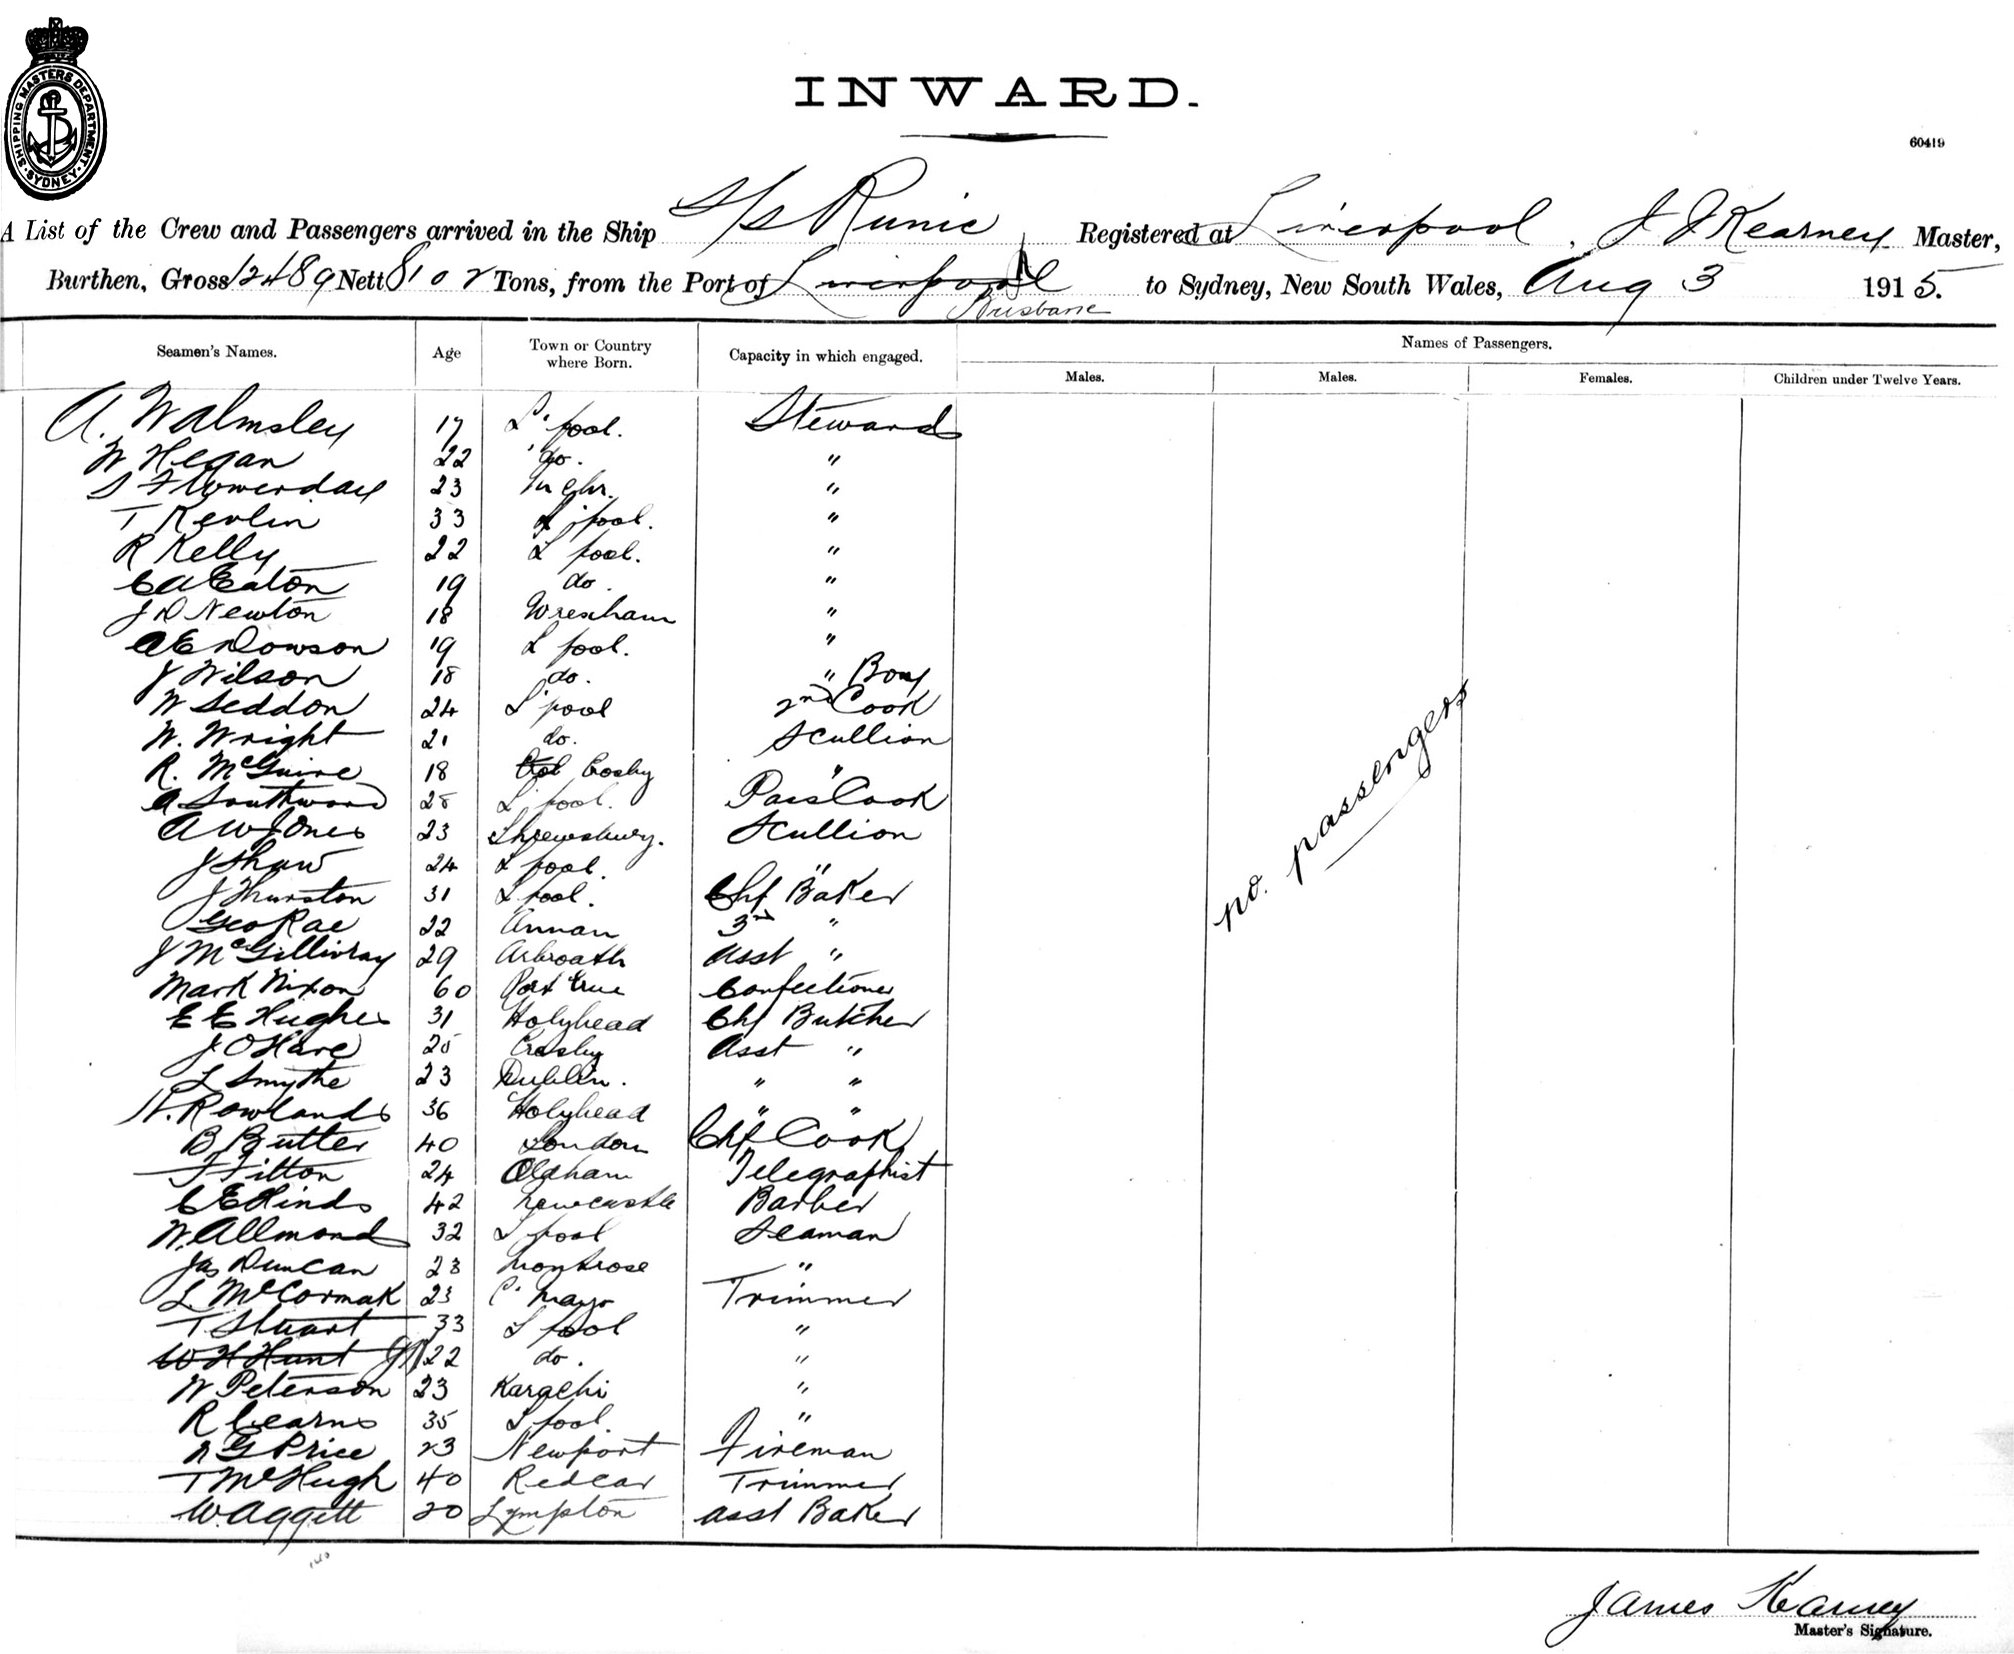 SHIPPING MASTERS DEPARTMENT
SYDNEY
INWARD.
60419
A List of the Crew and Passengers arrived in the Ship S/s Runic Registered at Liverpool, J J Kearney Master,
Burthen, Gross 12489 Nett 8102 Tons, from the Port of Liverpool Brisbane to Sydney, New South Wales, Aug 3 1915.
Seamen's Names. Age Town or Country where Born. Capacity in which engaged. Names of Passengers.
Males. Males. Females. Children under Twelve Years.
A. Walmsley 17 L'pool. Steward
W Hegan 22 do. "
S Flowerday 23 "
T Kevlin 33 L'pool. "
R Kelly 22 L pool. "
C A Eaton 19 do. "
J D Newton 18 Wrexham "
A E Dowson 19 L pool. "
J Wilson 18 do. " Boy
W Seddon 24 L'pool 2nd Cook
W. Wright 21 do. Scullion
R. McGuire 18 Crosby "
A Southwood 28 L'pool. Pass Cook
A W Jones 23 Shrewsbury. Scullion
J Shaw 24 L pool. "
J Thurston 31 L pool. Chf Baker
Geo Rae 22 Annan 3rd "
J McGillivray 29 Arbroath Asst "
Mark Nixon 60 Confectioner
E E Hughes 31 Holyhead Chf Butcher
J O'Hare 25 Crosby Asst "
L Smythe 23 Dublin. " "
H. Rowlands 36 Holyhead " "
B Butter 40 London Chf Cook
F Fitton 24 Oldham Telegraphist
C E Hinds 42 Newcastle Barber
W. Allmond 32 L pool Seaman
Jas Duncan 23 Montrose "
L McCormak 23 C. Mayo Trimmer
T Stuart 33 L pool "
W H Hunt 22 do. "
W Peterson 23 Karachi "
R Cearns 35 L pool. "
N G Price 23 Newport Fireman
T McHugh 40 Redcar Trimmer
W. Aggett 20 Lympton asst Baker
no. passengers
James Kearney
Master's Signature.